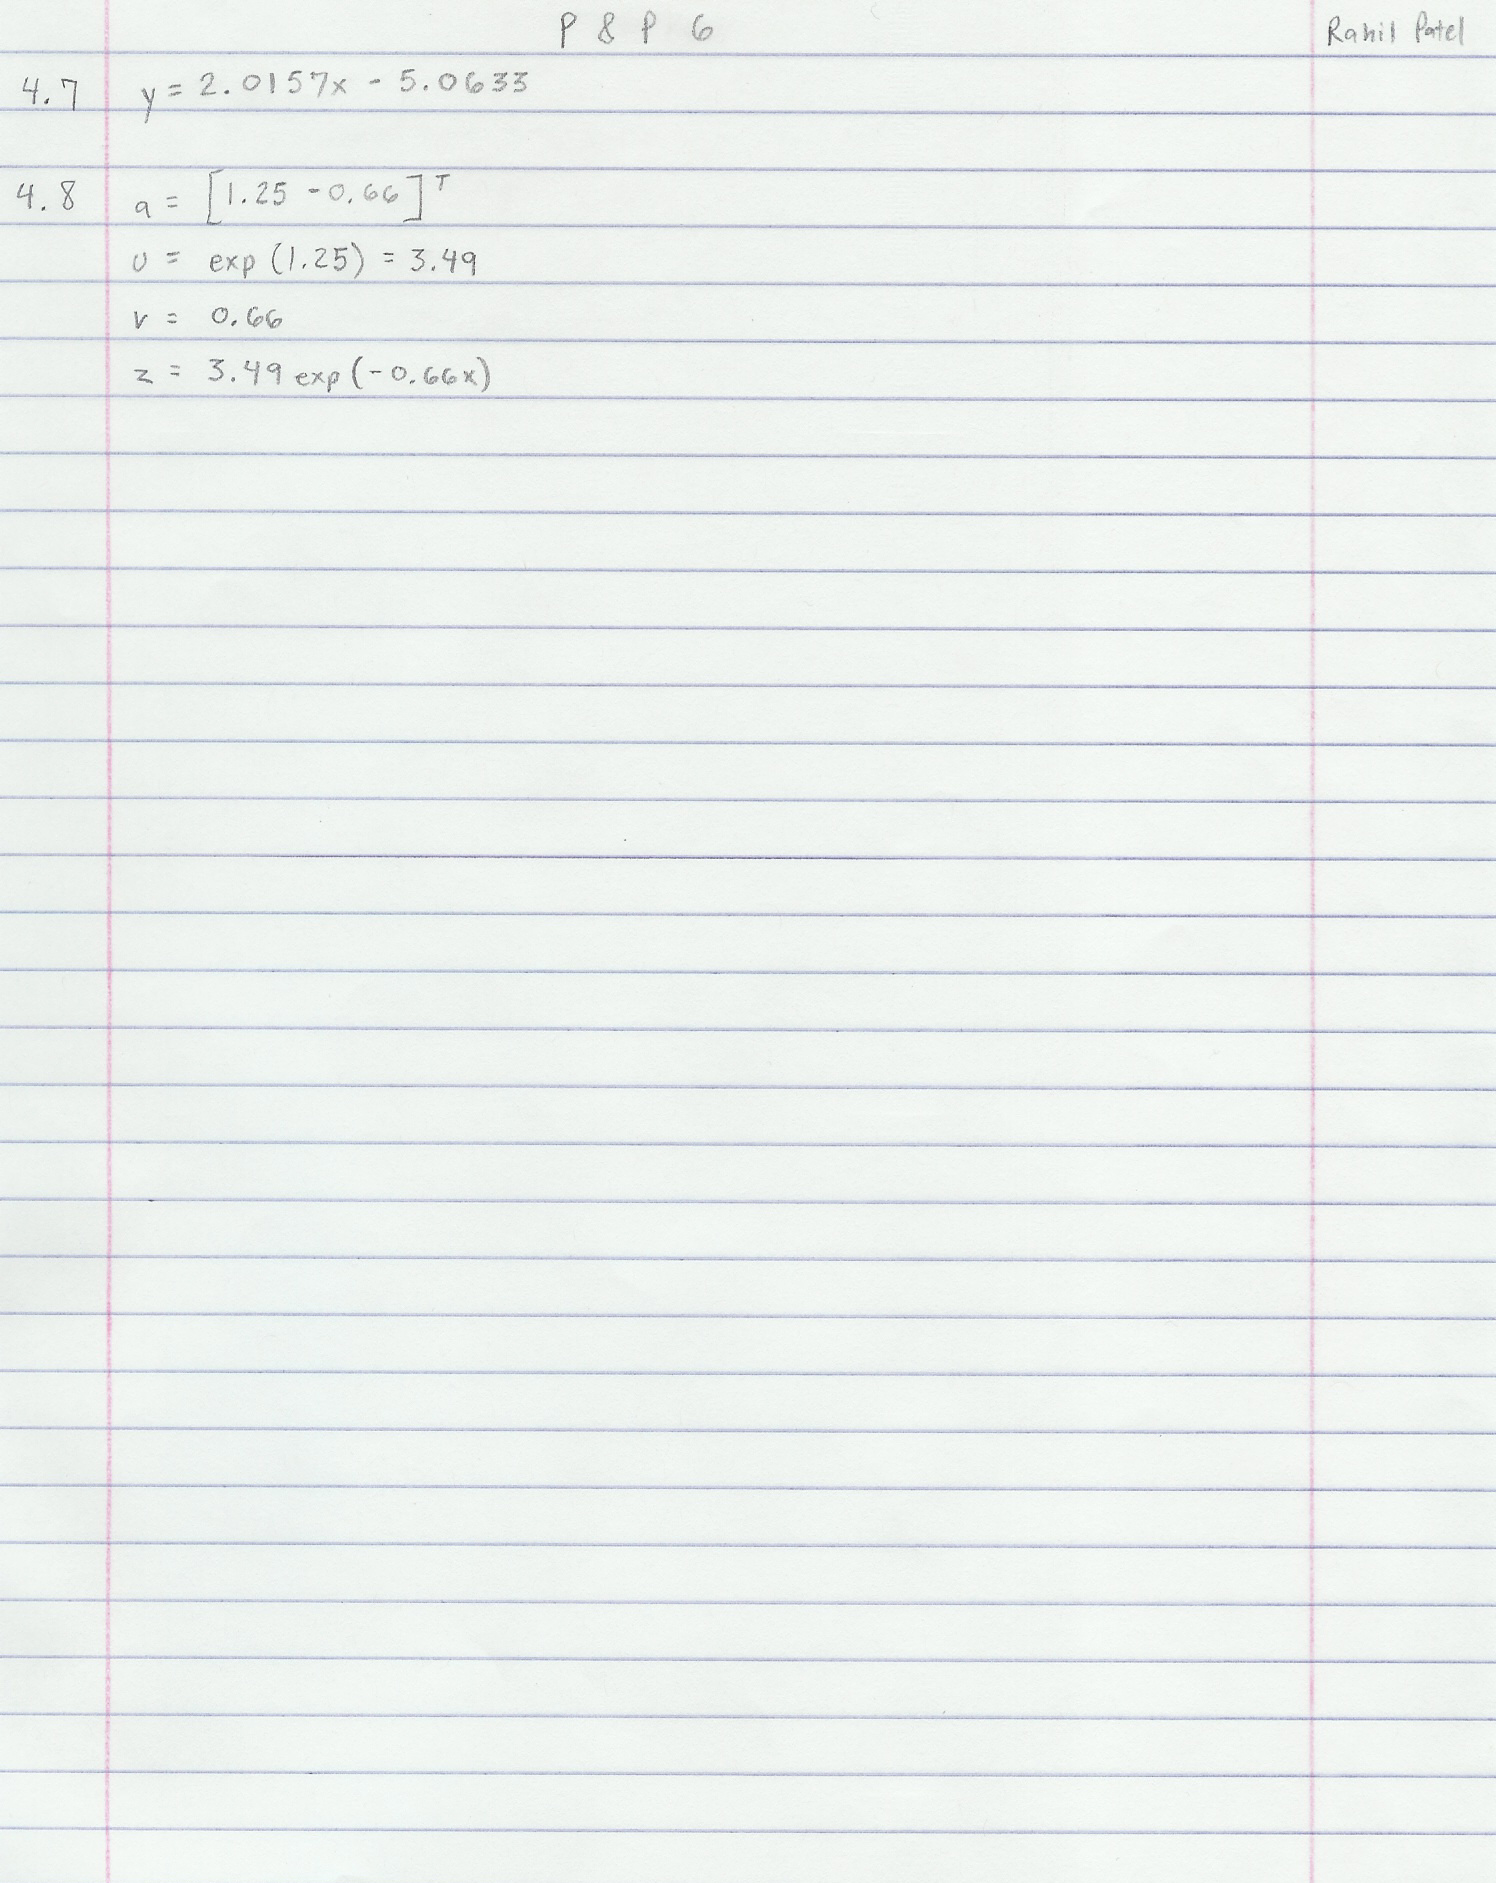 P & P 6 Rahil Patel
4.7 y = 2.0157x - 5.0633
4.8 a = [1.25 -0.66]ᵀ
u = exp(1.25) = 3.49
v = 0.66
z = 3.49 exp(-0.66x)